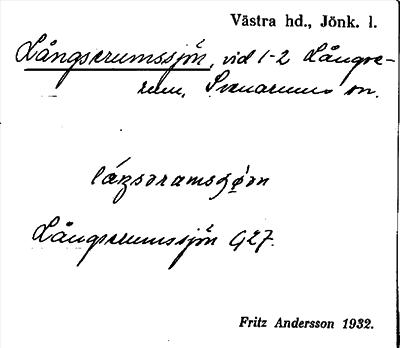 Västra hd., Jönk. l.
Långserumssjön, vid 1-2 Långse-
rum, Svenarums sn.
Långserumssjön G27.
Fritz Andersson 1932.